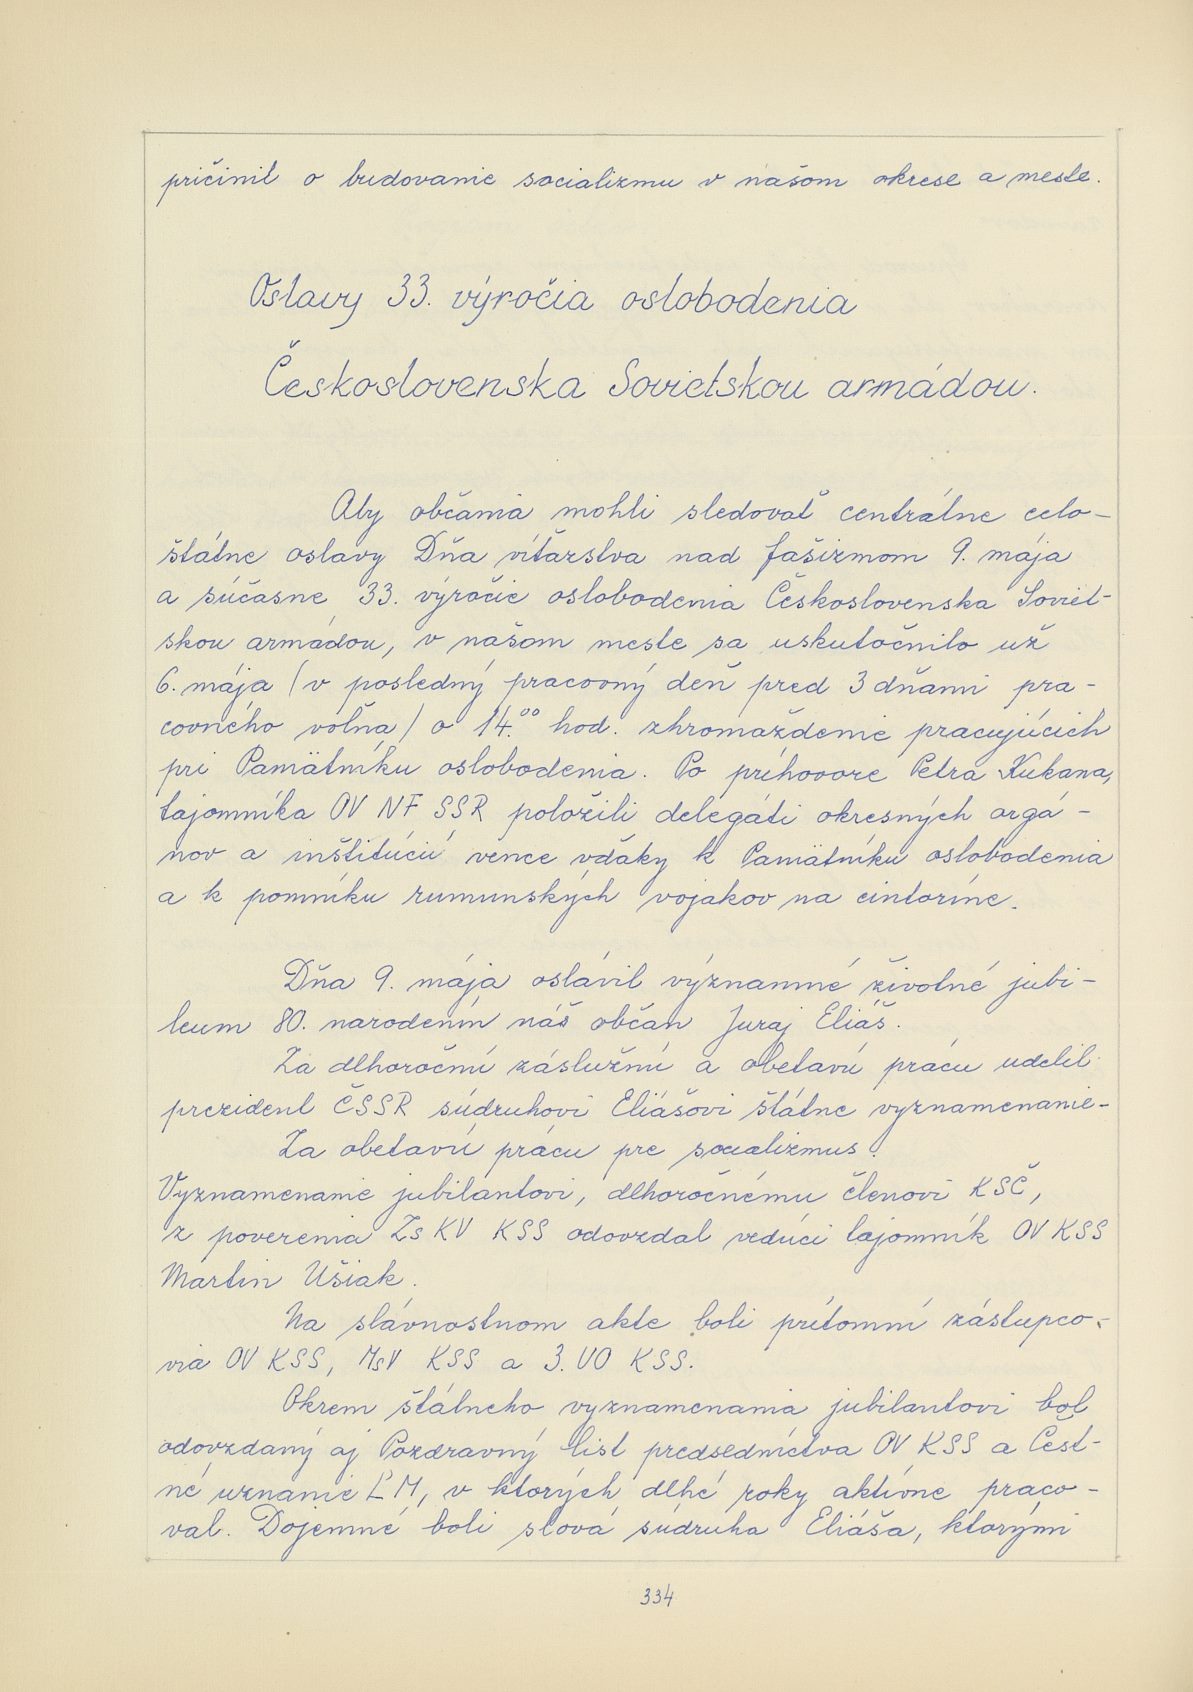 pričinil o budovanie socializmu v našom okrese a meste.
Oslavy 33. výročia oslobodenia
Československa Sovietskou armádou.
Aby občania mohli sledovať centrálne celo-
štátne oslavy Dňa víťazstva nad fašizmom 9. mája
a súčasne 33. výročie oslobodenia Československa Soviet-
skou armádou, v našom meste sa uskutočnilo už
6. mája / v posledný pracovný deň pred 3 dňami pra-
covného voľna / o 14.00 hod. zhromaždenie pracujúcich
pri Pamätníku oslobodenia. Po príhovore Petra Kukana,
tajomníka OV NF SSR položili delegáti okresných orgá-
nov a inštitúcií vence vďaky k Pamätníku oslobodenia
a k pomníku rumunských vojakov na cintoríne.
Dňa 9. mája oslávil významné životné jubi-
leum 80. narodenín náš občan Juraj Eliáš.
Za dlhoročnú záslužnú a obetavú prácu udelil
prezident ČSSR súdruhovi Eliášovi štátne vyznamenanie-
Za obetavú prácu pre socializmus.
Vyznamenanie jubilantovi, dlhoročnému členovi KSČ,
z poverenia Zs KV KSS odovzdal vedúci tajomník OV KSS
Martin Ušiak.
Na slávnostnom akte boli prítomní zástupco-
via OV KSS, MsV KSS a 3. UO KSS.
Okrem štátneho vyznamenania jubilantovi bol
odovzdaný aj Pozdravný list predsedníctva OV KSS a Čest-
né uznanie ĽM, v ktorých dlhé roky aktívne praco-
val. Dojemné boli slová súdruha Eliáša, ktorými
334